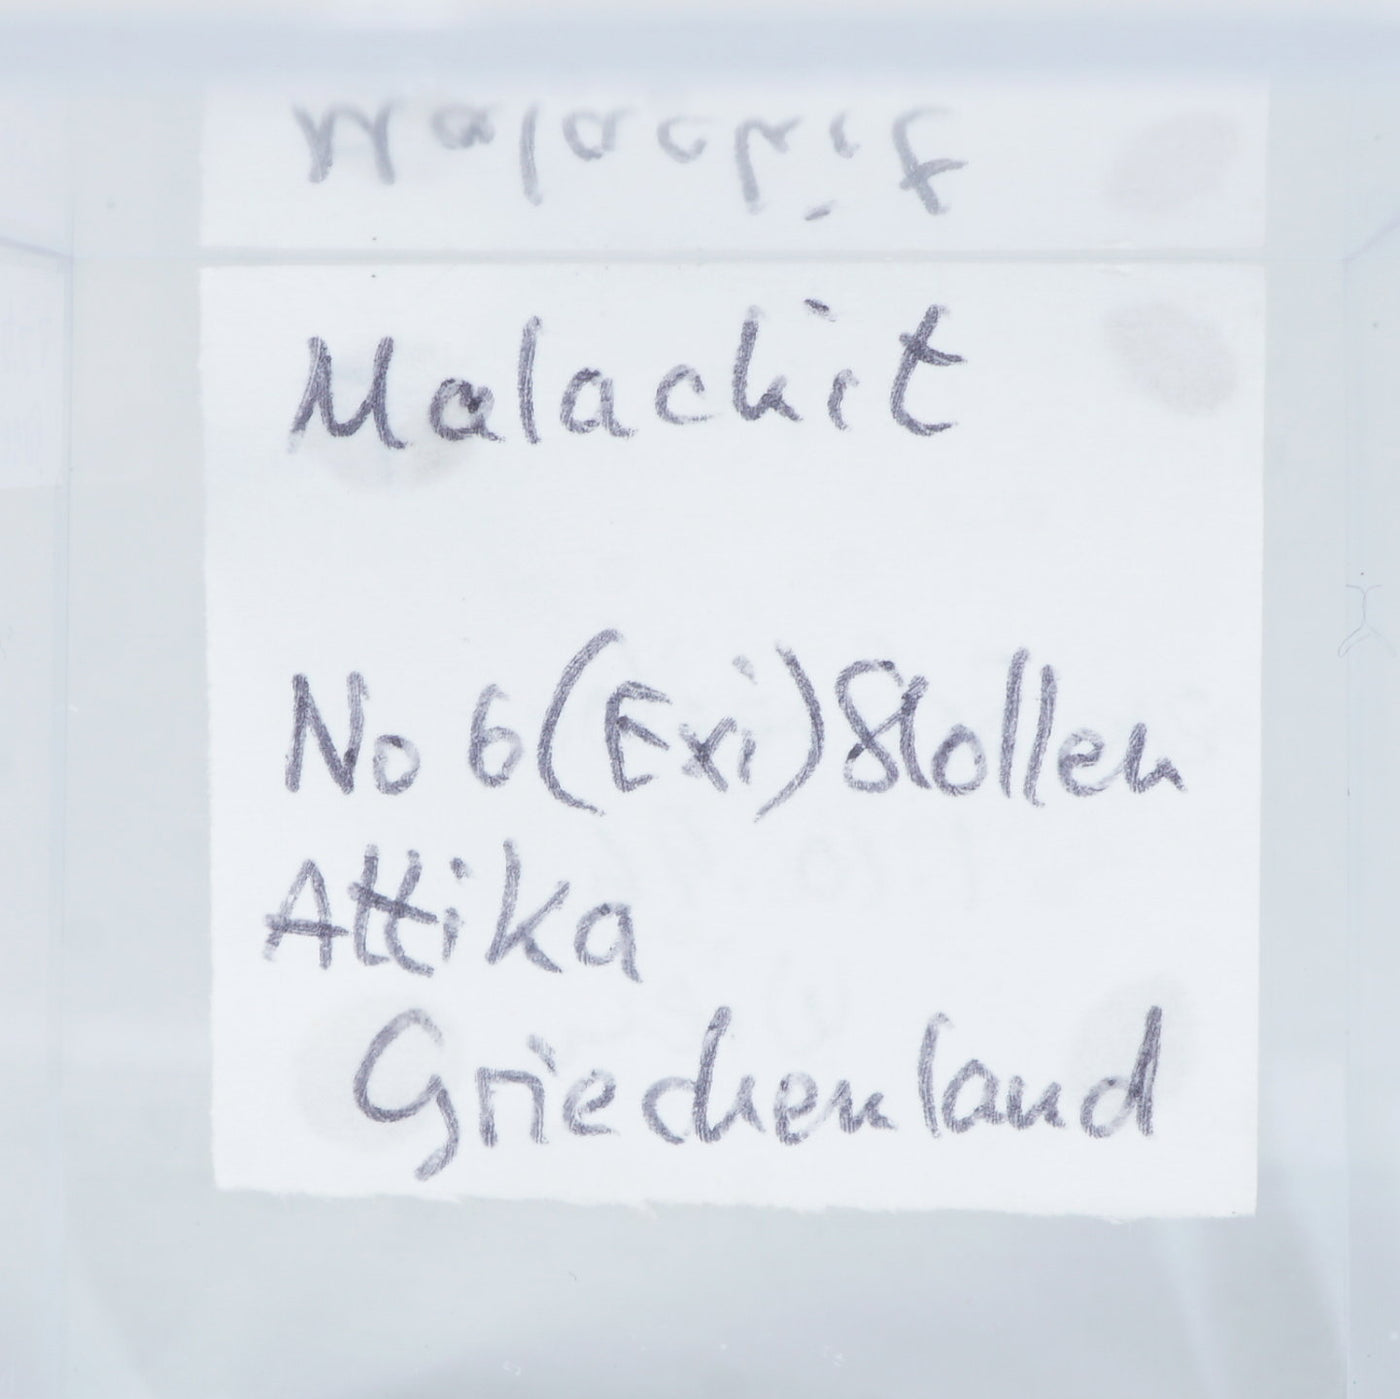 Malachit
No 6 (Exi) Stollen
Attika
Griechenland